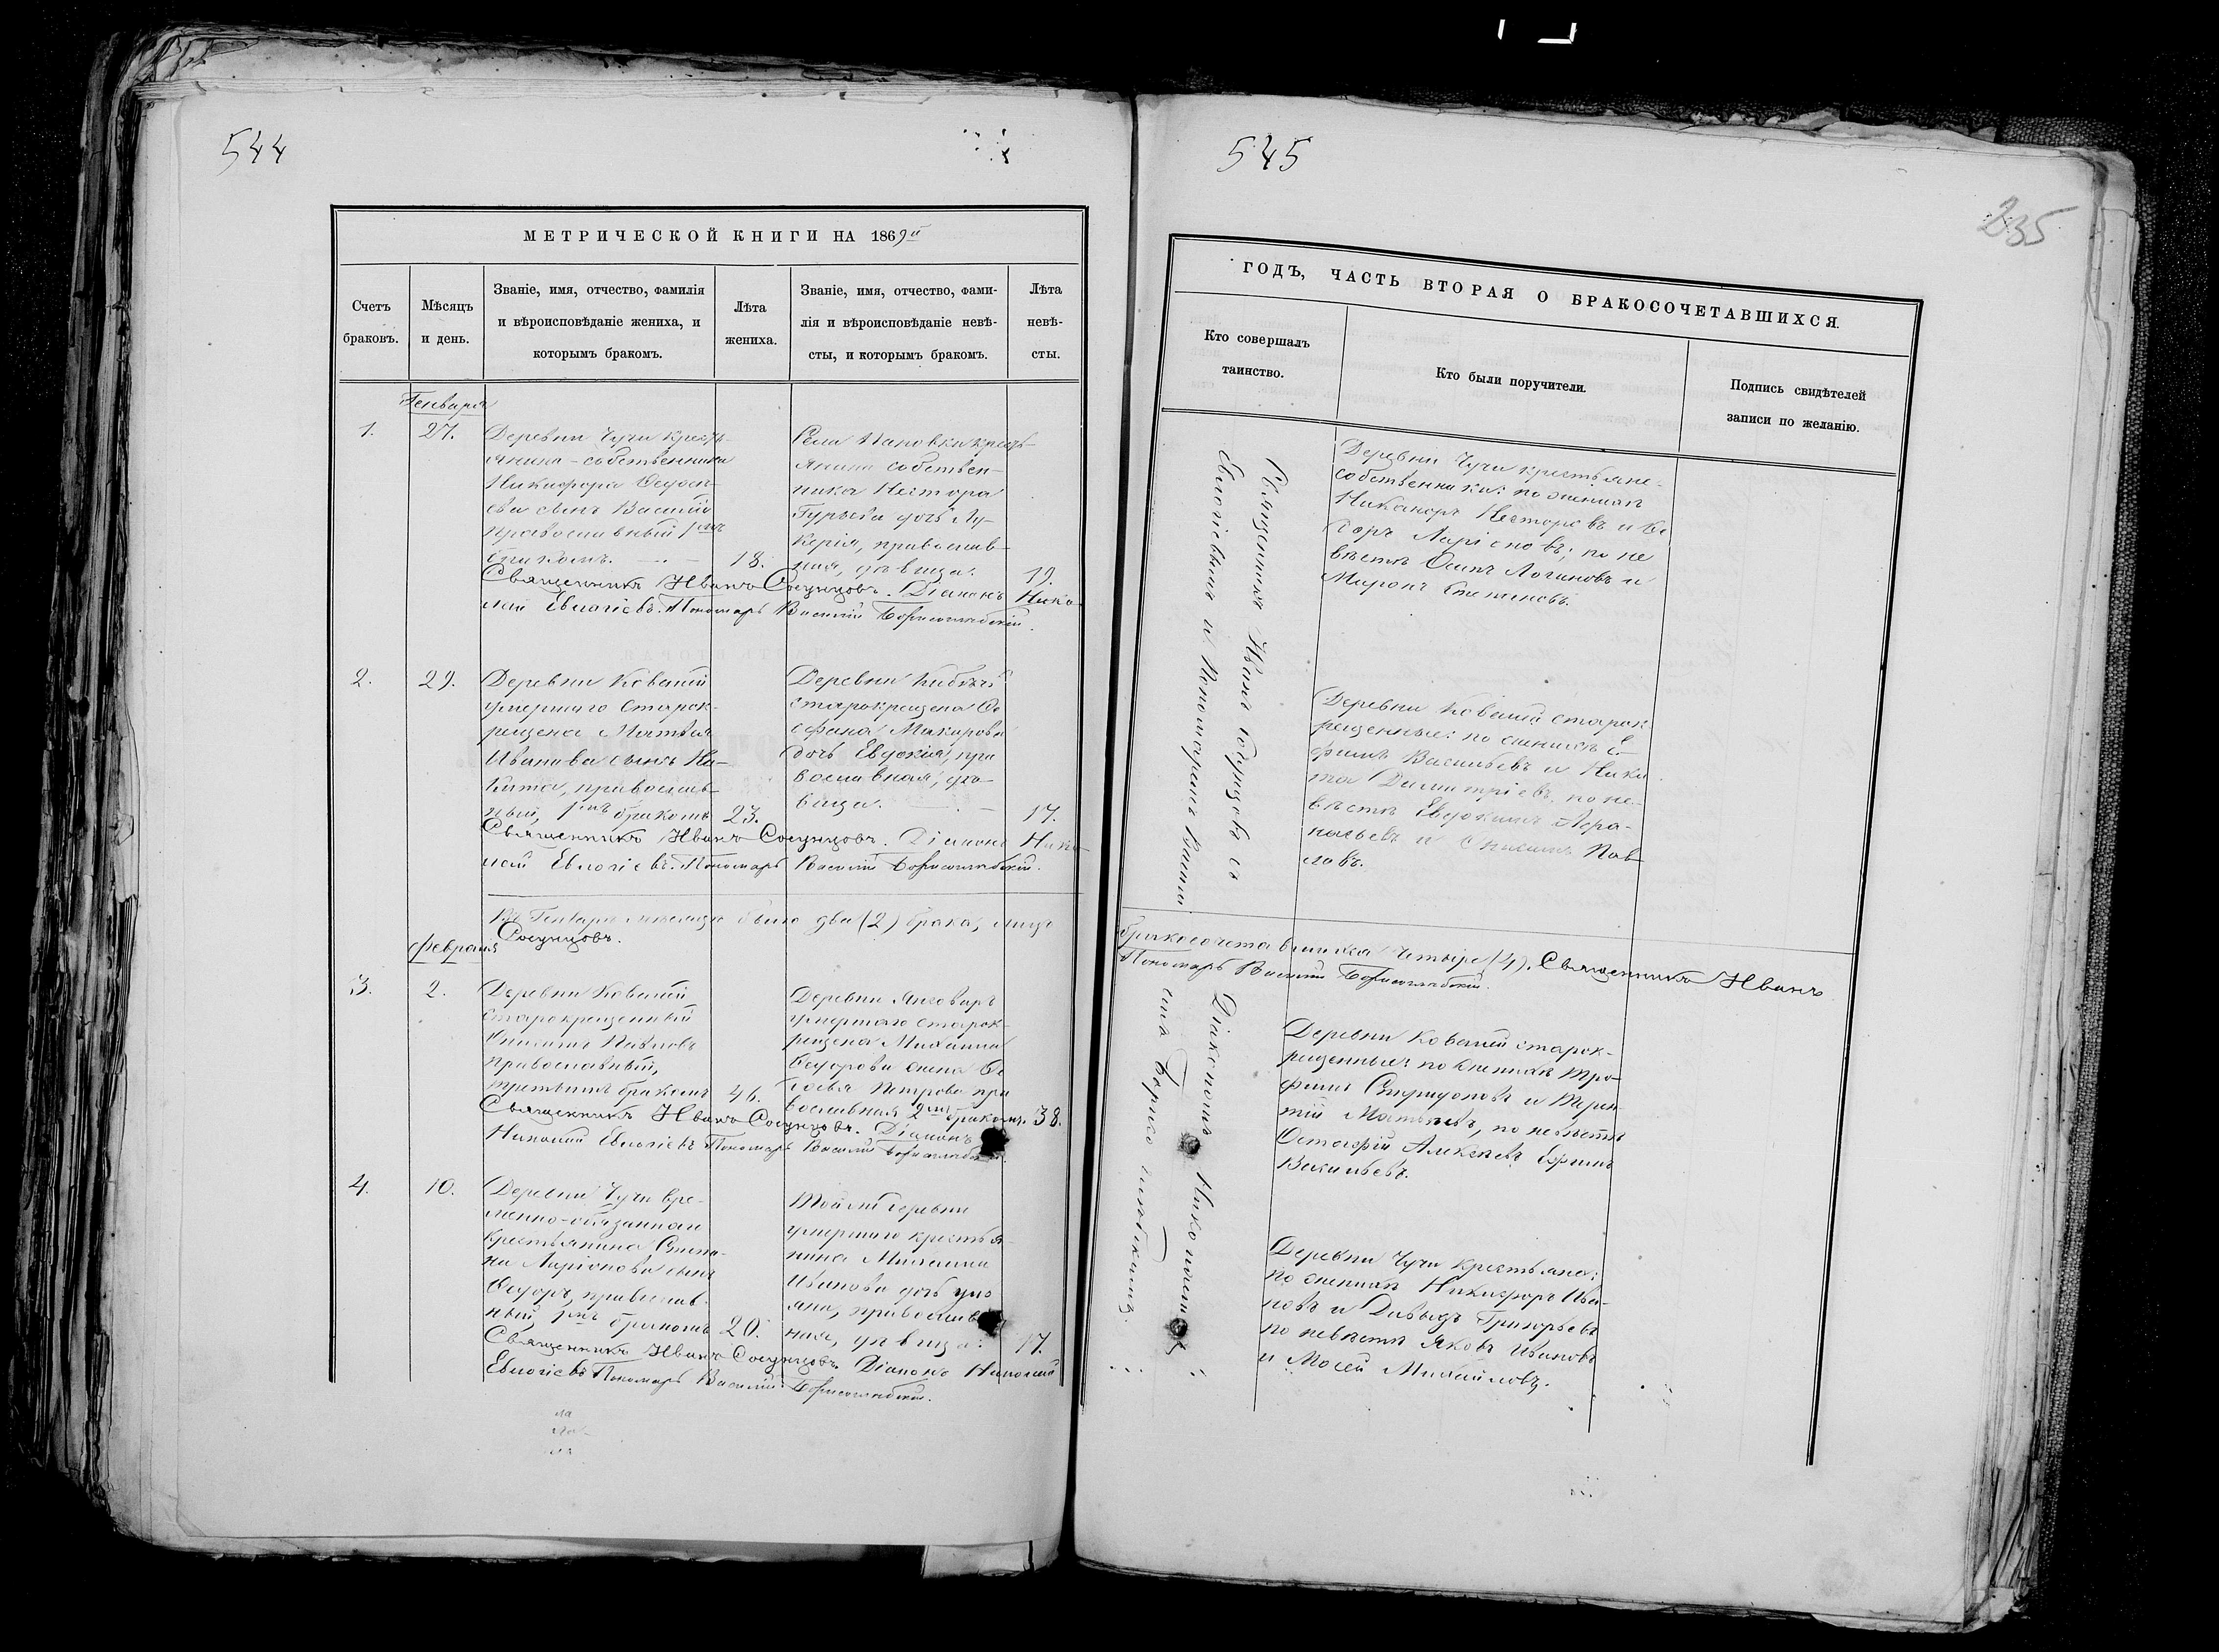 544
МЕТРИЧЕСКОЙ КНИГИ НА 1869й
Счетъ
браковъ.
Мѣсяцъ
и день.
Званіе, имя, отчество, фамилія
и вѣроисповѣданіе жениха, и
которымъ бракомъ.
Лѣта
жениха.
Званіе, имя, отчество, фами-
лія и вѣроисповѣданіе невѣ-
сты, и которымъ бракомъ.
Лѣта
невѣ-
сты.
Генваря
1.
27.
Деревни Чучи кресть-
янина-собственника
Никифора Ѳедосѣ-
ева сынъ Василій
православный 1мъ
бракомъ.
18.
Села крестъ-
янина собствен-
ника Нестора
Гурьева дочь Лу-
керія, православ-
ная, дѣвица.
19.
Священникъ Иванъ Сосунцовъ. Діаконъ Нико-
лай Евлогіевъ. Пономарь Василій Борисоглѣбскій.
2.
29.
Деревни Ковалей
умершаго старок-
рещена Матвѣя
Иванова сынъ Ни-
кита, православ-
ный, 1мъ бракомъ
23.
Деревни
старокрещена Ѳе
офана Макарова
дочь Евдокія, пра
вославная, дѣ-
вица.
17.
Священникъ Иванъ Сосунцовъ. Діаконъ Нико-
лай Евлогіевъ. Пономарь Василій Борисоглѣбскій.
Въ Генварѣ мѣсяцѣ было два (2) брака, лицъ
Сосунцовъ.
Февраля
3.
2.
Деревни Ковалей
старокрещенный
Павловъ
православный,
третьимъ бракомъ
46.
Деревни Янсоваръ
умершаго старок-
рещена Михаила
Ѳедорова жена Ѳе
Петрова пра
вославная 2мъ бракомъ.
38.
Священникъ Иванъ Сосунцовъ. Діаконъ
Николай Евлогіевъ Пономарь Василій Борисоглѣбскій.
4.
10.
Деревни Чучи вре-
менно-обязаннаго
крестьянина Степа-
на Ларіонова сынъ
Ѳедоръ, православ-
ный, 1мъ бракомъ
20.
Той же деревни
умершаго крестья-
нина Михаила
Иванова дочь Улі
яна, православ
ная, дѣвица.
17.
Священникъ Иванъ Сосунцовъ. Діаконъ Николай
Евлогіевъ Пономарь Василій Борисоглѣбскій.
545
235
ГОДЪ, ЧАСТЬ ВТОРАЯ О БРАКОСОЧЕТАВШИХСЯ.
Кто совершалъ
таинство.
Кто были поручители.
Подпись свидѣтелей
записи по желанію.
Священникъ Иванъ Сосунцовъ съ Діакономъ Николаемъ
Евлогіевымъ и Пономаремъ Василіемъ Борисоглѣбскимъ.
Деревни Чучи крестьяне-
собственники: по женихѣ
Никаноръ Несторовъ и Ѳе
доръ Ларіоновъ; по не
вѣстѣ Осипъ Логиновъ и
Миронъ Степановъ.
Деревни Ковалей старок
рещенные: по женихѣ Е-
фимъ Васильевъ и Ники
та Димитріевъ, по не-
вѣстѣ Евдокимъ Аѳа-
насьевъ и Пав-
ловъ.
бракосочетавшихся четыре (4). Священникъ Иванъ
Пономарь Василій Борисоглѣбскій.
Деревни Ковалей старок-
рещенные: по женихѣ Тро-
фимъ Спиридоновъ и Терен-
тій Матвѣевъ, по невѣстѣ
Остафій Алексѣевъ Ефимъ
Васильевъ.
Деревни Чучи крестьяне:
по женихѣ Никифоръ Ива-
новъ и Давыдъ Григорьевъ
по невѣстѣ Яковъ Ивановъ
и Мосей Михайловъ.